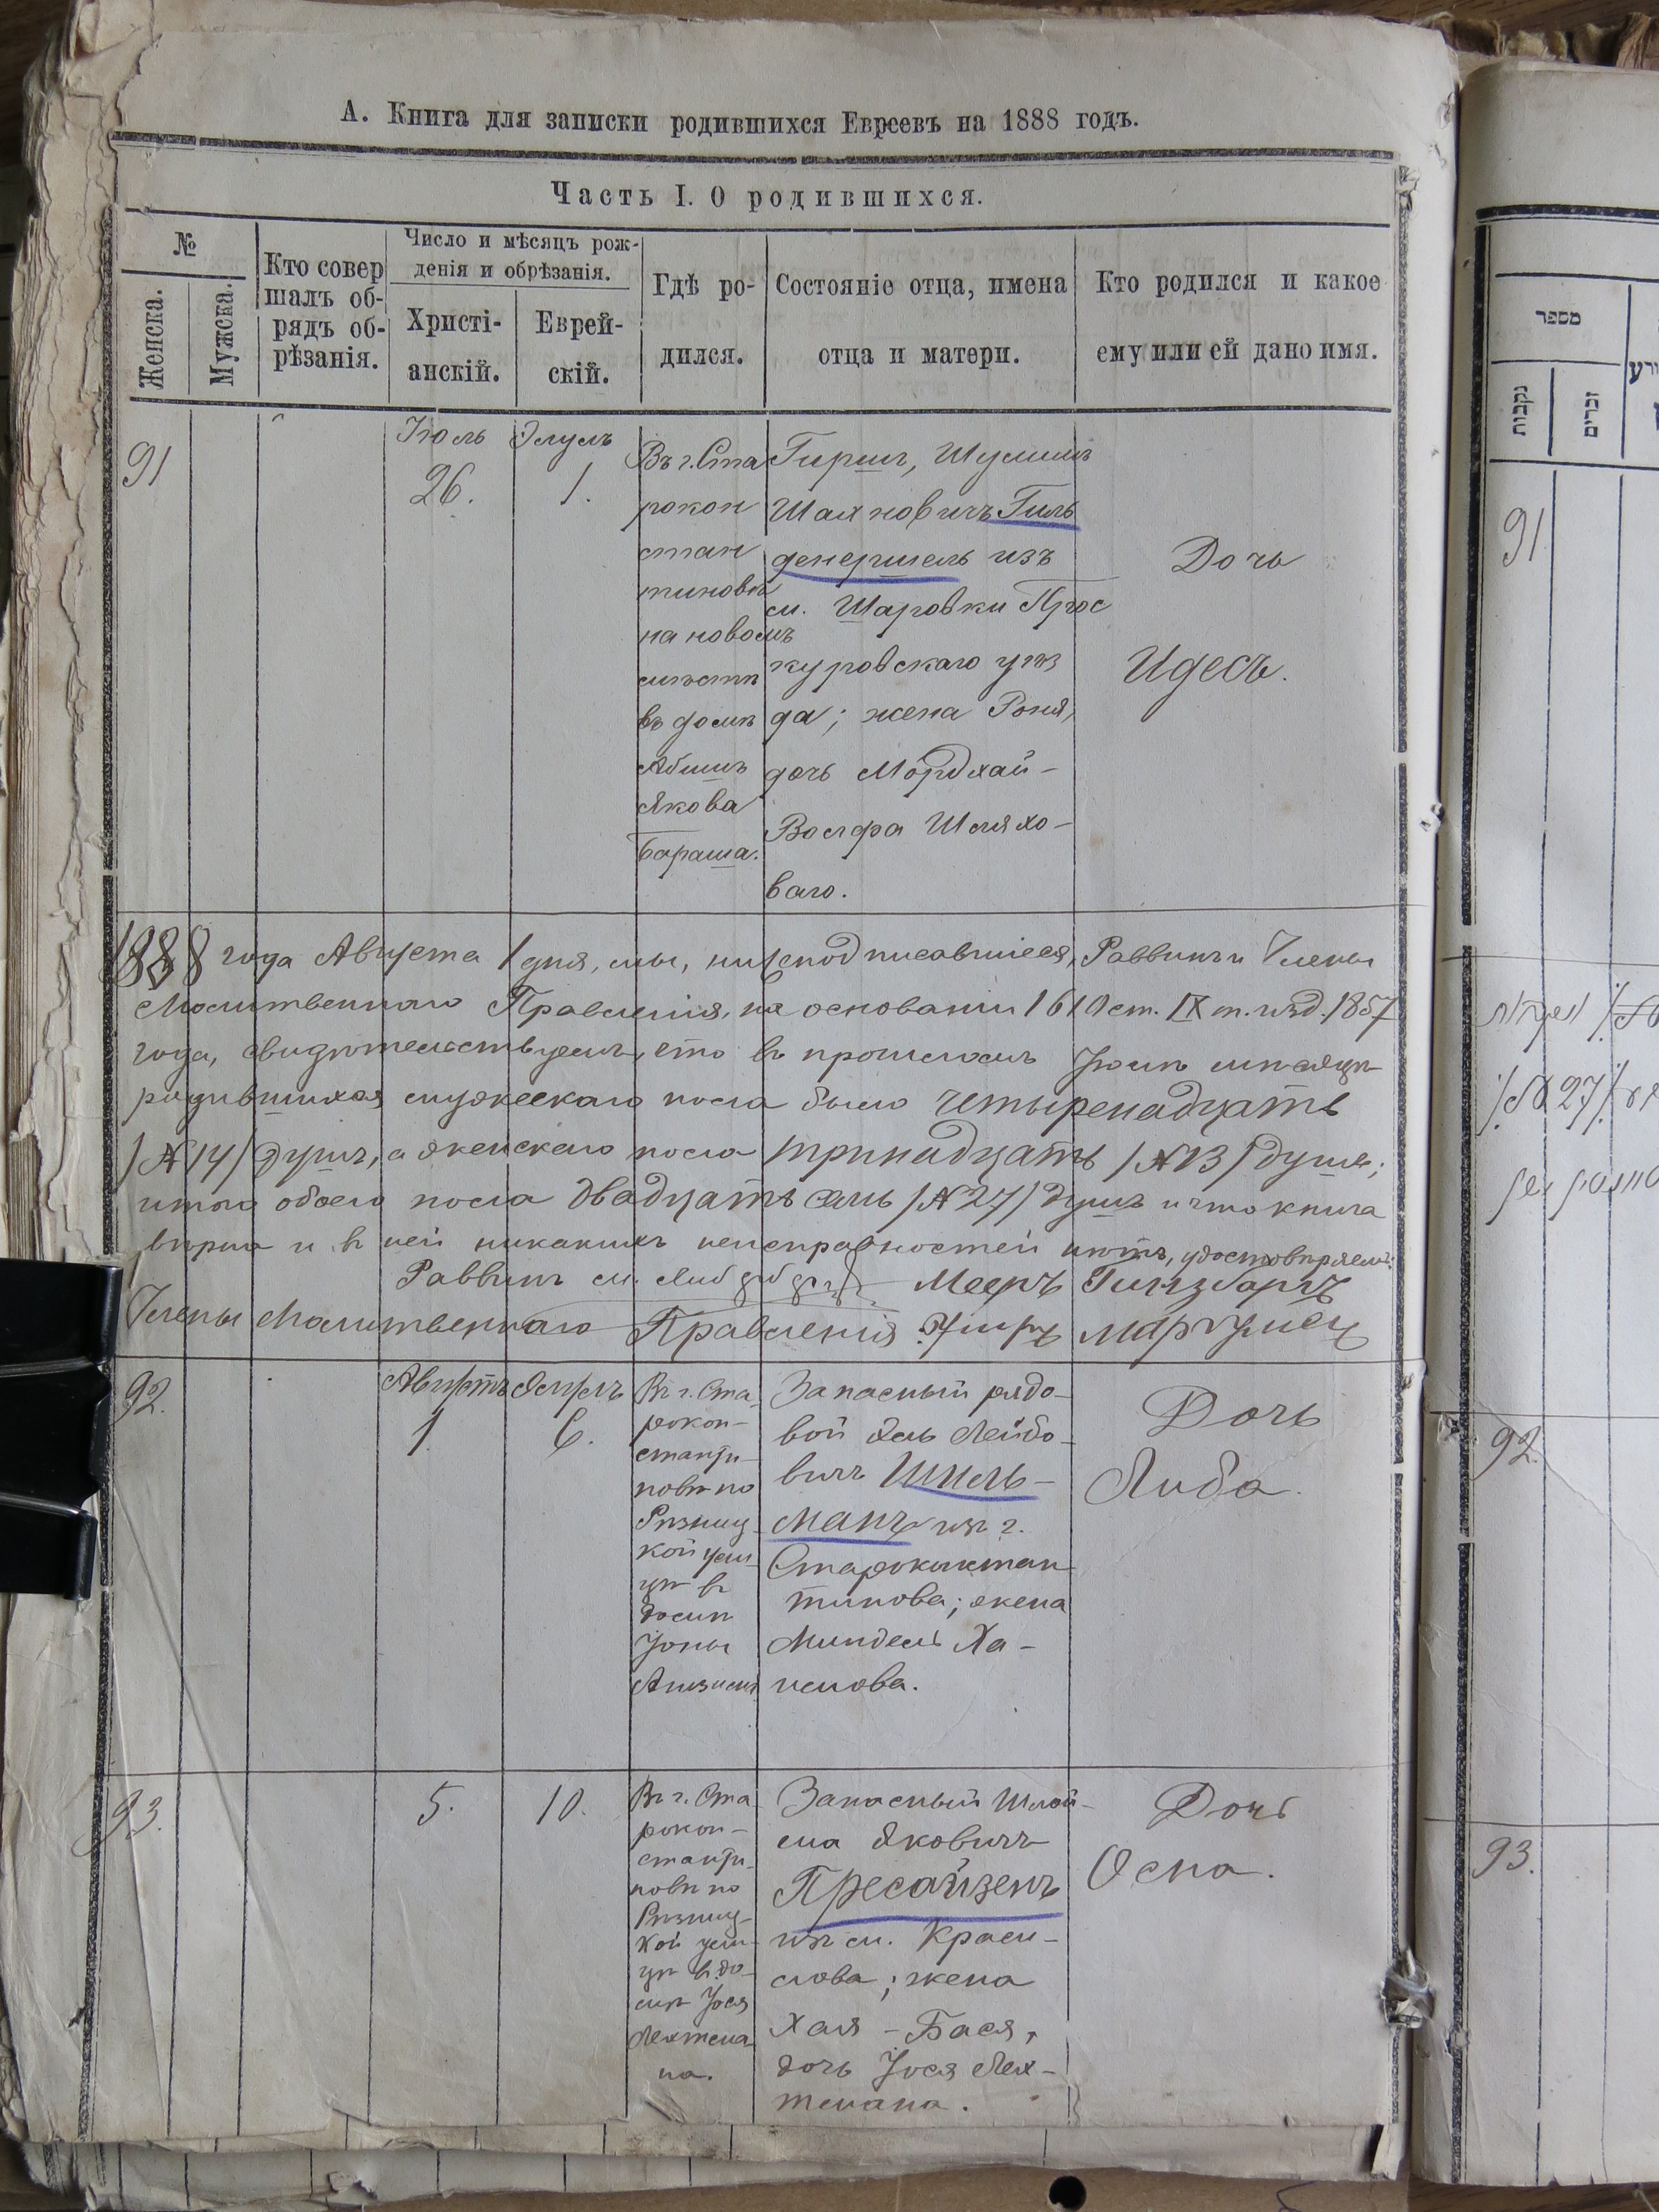 А. Книга для записки родившихся Евреевъ на 1888 годъ.
Часть I. О родившихся.
№
Женска.
Мужска.
Кто совер
шалъ об-
рядъ об-
рѣзанія.
Число и мѣсяцъ рож-
денія и обрѣзанія.
Христі-
анскій.
Еврей-
скій.
Гдѣ ро-
дился.
Состояніе отца, имена
отца и матери.
Кто родился и какое
ему или ей дано имя.
91
Іюль
26.
Элулъ
1.
Въ г. Ста
рокон
стан
тиновѣ
на новомъ
мѣстѣ
въ домѣ
Абишъ
Якова
Бараша.
Гиршъ, Шулимъ
Шаяновичъ Гиль
денершель изъ
м. Шаровки Прос
куровскаго уѣз
да; жена Роня,
дочь Мордхай-
Волфа Шляхо-
ваго.
Дочь
Идесъ.
1888 года Августа 1 дня, мы, нижеподписавшіеся, Раввинъ и Члены
Молитвенного Правленія, на основаніи 1610 ст. IX т. изд. 1857
года, свидѣтельствуемъ, что въ прошломъ Іюлѣ мѣсяцѣ
родившихся мужескаго пола было четыренадцать
/№ 14/ душъ, а женскаго пола тринадцать /№ 13/ душъ;
итого обоего пола двадцать семь /№ 27/ душъ и что книга
вѣрна и въ ней никакихъ неисправностей нѣтъ, удостовѣряемъ:
Раввинъ Мееръ Гинзбаргъ
Члены Молитвенного Правленія Маргулец
92.
Августъ
1.
Элулъ
6.
Въ г. Ста
рокон-
станти-
новѣ по
Рѣзниц-
кой ули-
цѣ въ
домѣ
Іоны
Запасный рядо-
вой Эль Лейбо-
вичъ Шпиль-
манъ изъ г.
Староконстан
тинова; жена
Миндель Ха-
имова.
Дочь
Либа.
93.
5.
10.
Въ г. Ста
рокон-
станти-
новѣ по
Рѣзниц-
кой ули-
цѣ въ до-
мѣ Іося
Лехтма
на.
Запасный Шлой-
ма Яковичъ
Пресайзенъ
изъ м. Краси-
лова; жена
Хая - Бася,
дочь Іося Лех-
тмана.
Дочь
Осна.
מספר
נקבות
זכרים
91
92.
93.